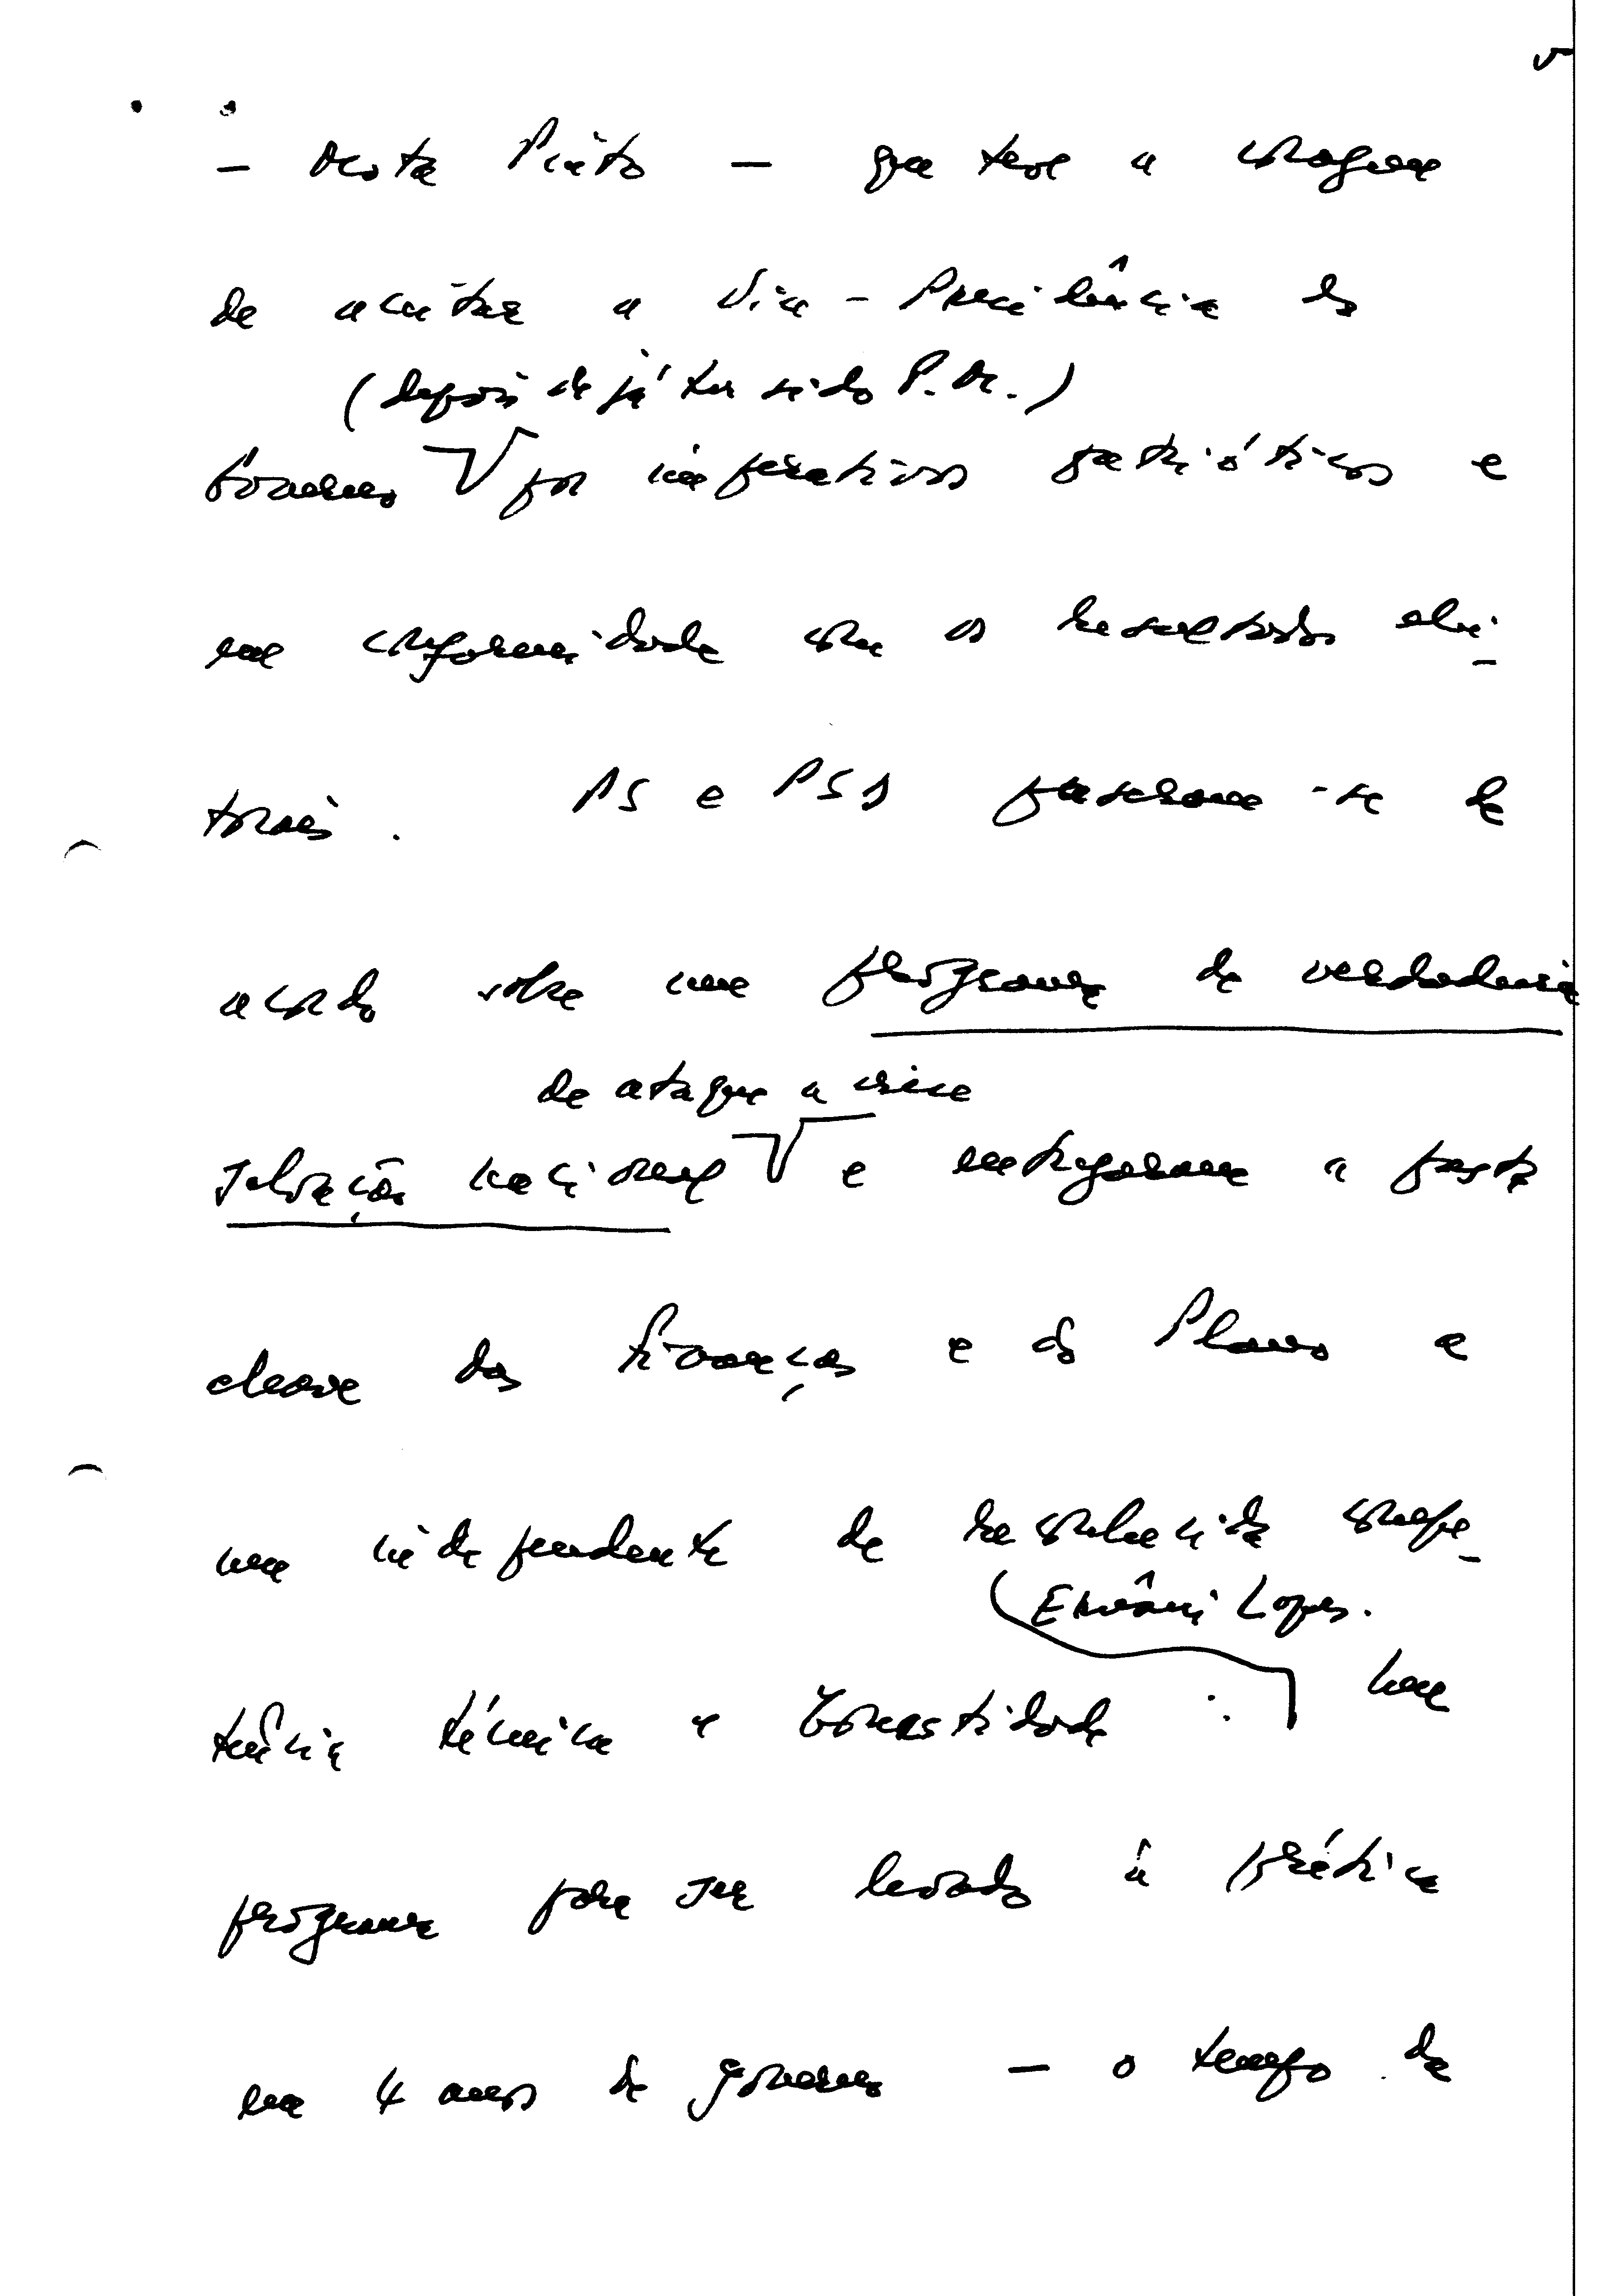 5
– Mota Pinto – que teve a coragem
de aceitar a Vice-Presidência do
(depois de já ter sido P.M.)
Governo por imperativos patrióticos e
em conformidade com os resultados elei-
torais. PS e PSD puseram-se de
acordo sobre um programa de verdadeira
de ataque a crise
salvação nacional e entregaram a pasta
chave das Finanças e do Plano a
um independente de reconhecida compe-
Ernâni Lopes.
tência técnica e honestidade : um
programa para ser levado à prática
em 4 anos de governo – o tempo de